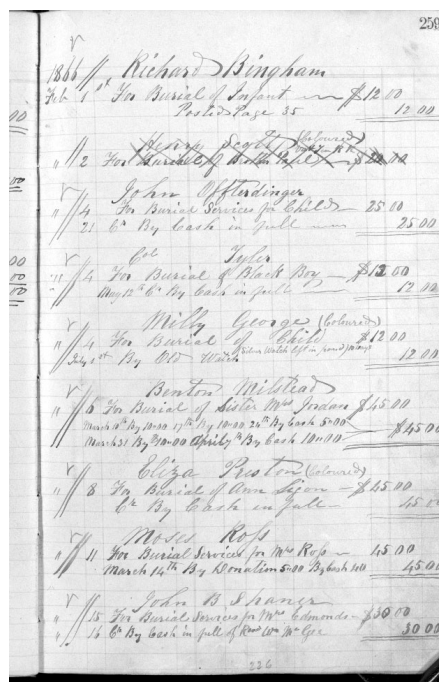 259
1866 Richard Bingham
Feb 1st For Burial of Infant $12.00
Posted Page 35 12 00
Henry Scott (Coloured)
" 2 For Burial of $20.00
John Offterdinger
" 4 For Burial Services for Child 25 00
21 Cr By Cash in full 25 00
Col Tyler
" 4 For Burial of Black Boy $12 00
May 12th Cr By Cash in full 12 00
Milly George (Coloured)
" 4 For Burial of Child $12 00
July 1st By Old Watch (Silver Watch left in pound) 12 00
Benton Milstead
" 6 For Burial of Sister Mrs Jordan $45 00
March 10th By 10=00 17th By 10=00 24th By Cash 5=00 $45 00
March 31 By 10=00 April 7th By Cash 10=00
Eliza Preston (Coloured)
" 8 For Burial of Ann $45 00
Cr By Cash in full 45 00
Moses Ross
" 11 For Burial Services for Mrs Ross 45 00
March 14th By Donation 5=00 By Cash 45 00
John B Shaner
" 15 For Burial Services for Mrs Edmonds $30 00
" 16 Cr By Cash in full of Revd Wm McGee 30 00
226